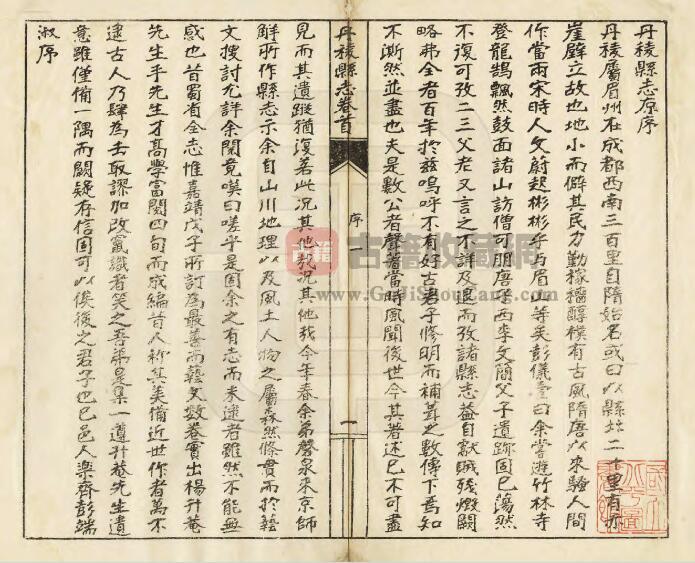 丹稜縣志原序
丹稜屬眉州在成都西南三百里自隋始名或曰以縣北二十里有赤
崖壁立故也地小而僻其民力勤稼穡醇樸有古風隋唐以來騷人間
作當兩宋時人文蔚起彬彬乎与眉山等矣彭儀
登龍鵠飄然鼓面諸山訪僧可朋唐子西李文簡父子遺跡固已蕩然
不復可攷二三父老又言之不詳及退而攷諸縣志蓋自獻賊殘燬闕
略弗全者百年於茲嗚呼不有好古君子修明而補葺之數傳下焉知
不澌然並盡也夫是數公者聲著當時風聞後世今其著述已不可盡
丹稜縣志卷首
序
一
見而其遺蹤猶復若此况其他哉况其他哉今年春余弟磬泉來京師
鮮所作縣志示余自山川地理以及風土人物之屬森然條貫而於藝
文搜討尤詳余閱竟嘆曰嗟乎是固余之有志而未逮者雖然不能無
感也昔蜀省全志惟嘉靖戊子所訂為最善而藝文數卷實出楊升菴
先生手先生才高學富閱四旬而成編昔人称其美備近世作者萬不
逮古人乃肆為去取謬加改竄識者笑之吾弟是集一遵升菴先生遺
意雖僅備一隅而闕疑存信固可以俟後之君子也已邑人樂齋彭端
淑序
古籍收藏網
www.GuJiShouCang.com